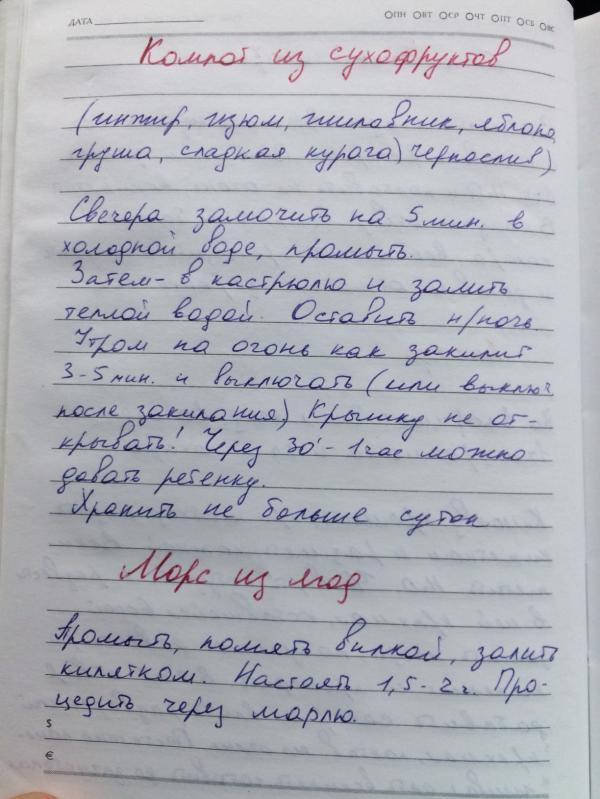 ДАТА
ПН ВТ СР ЧТ ПТ СБ ВС
Компот из сухофруктов
(инжир, изюм, шиповник, яблоко,
груша, сладкая курага) чернослив)
Свечера замочить на 5 мин. в
холодной воде, промыть.
Затем - в кастрюлю и залить
теплой водой. Оставить н/ночь.
Утром на огонь как закипит
3-5 мин. и выключать (или выключ
после закипания) Крышку не от-
крывать! Через 30' - 1 час можно
давать ребенку.
Хранить не больше суток
Морс из ягод
Промыть, помять вилкой, залить
кипятком. Настоять 1,5 - 2 ч. Про-
цедить через марлю.
$
€